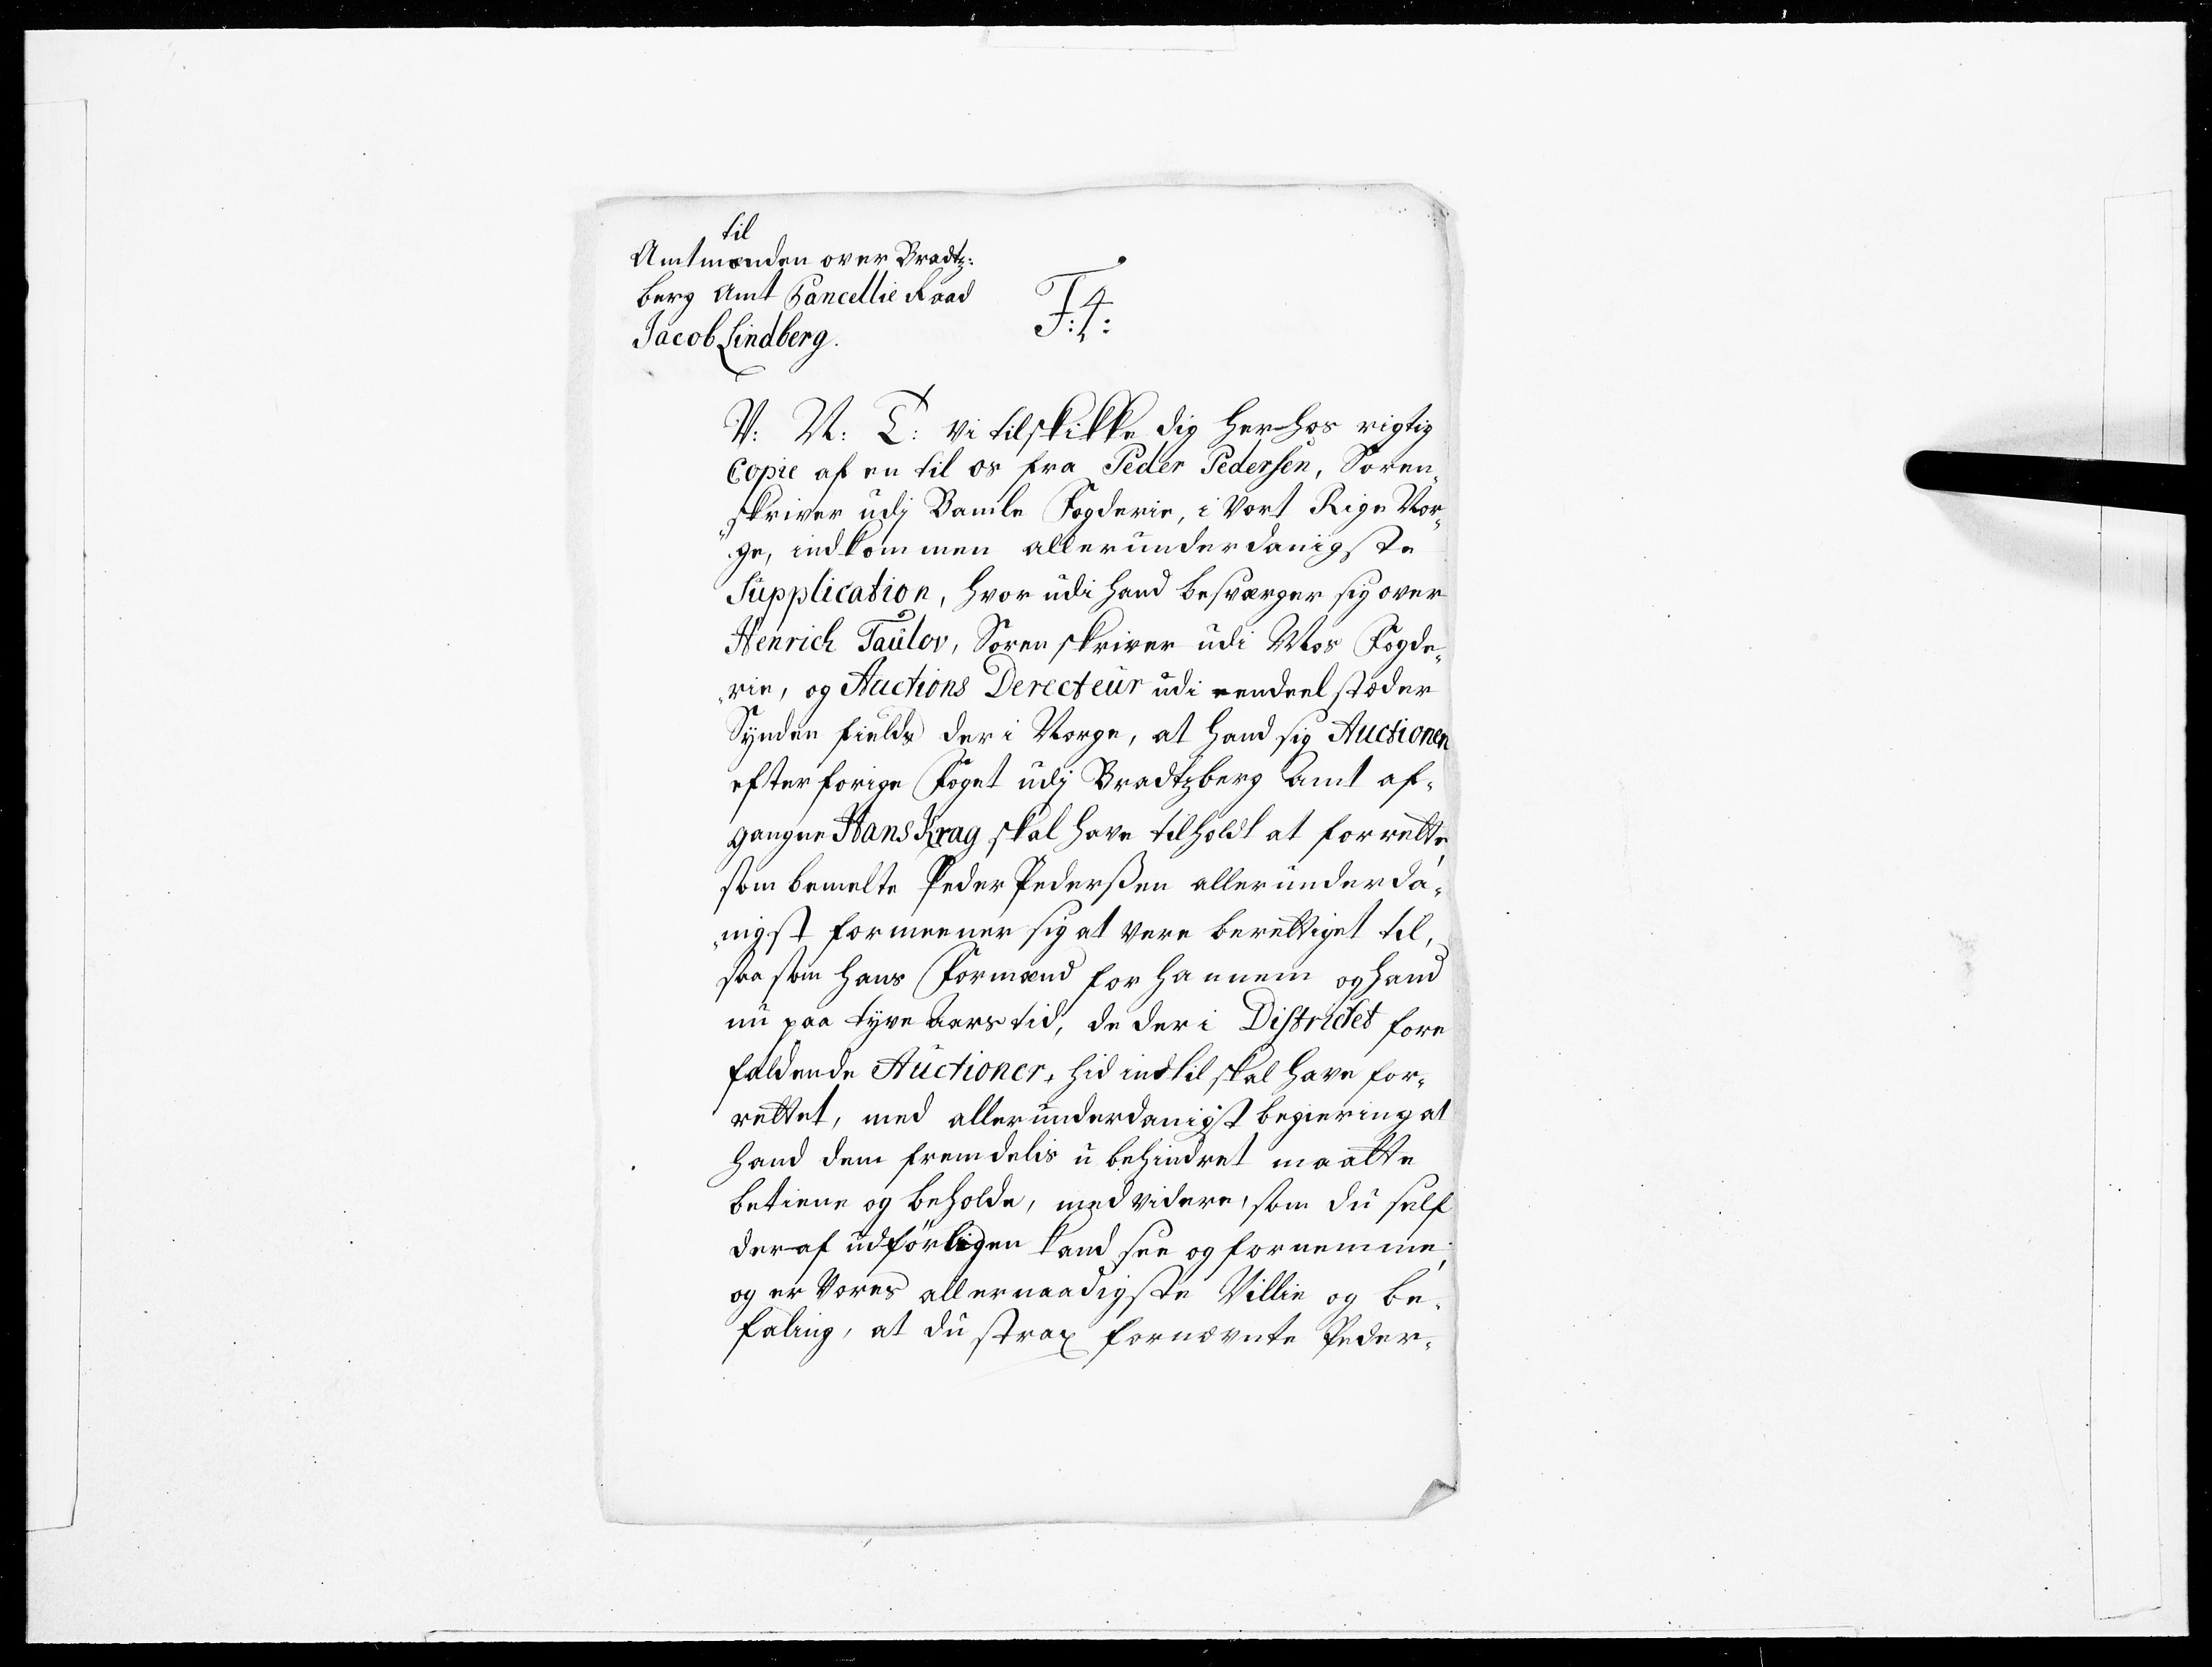 til
Amtmanden over Bradtz:
berg Amt Cancellie Raad
Jacob Lindberg.
F:4:
V: N: T: Vi tilskikke dig herhos rigtig
Copie af en til os fra Peder Pedersen, Soren„
skriver udj Bamle Fogderie, i Vort Rige Nor„
„ge, indkommen allerunderdanigste
Supplication, hvor udi hand besværger sig over
Henrich Taulov, Sorenskriver udi Mos Fogde„
„rie, og Auctions Derecteur udi eendeel stæder
Synden fields der i Norge, at hand sig Auctionen
efter forige Foget udj Bradtzberg Amt af„
gangne Hans Krag skal have tilholdt at forrette,
som bemelte Peder Pederssen allerunderda„
„nigst formeener sig at være berettiget til,
saa som hans Formænd for hannem og hand
nu paa tyve Aars tid, de der i Districtet fore
faldende Auctioner, hid indtil skal have for„
rettet, med allerunderdanigst begiering at
hand dem fremdelis u behindret maatte
betiene og beholde, med videre, som du self
deraf udførligen kand see og fornemme;
og er Vores allernaadigste Villie og be„
faling, at du strax fornævnte Peder„